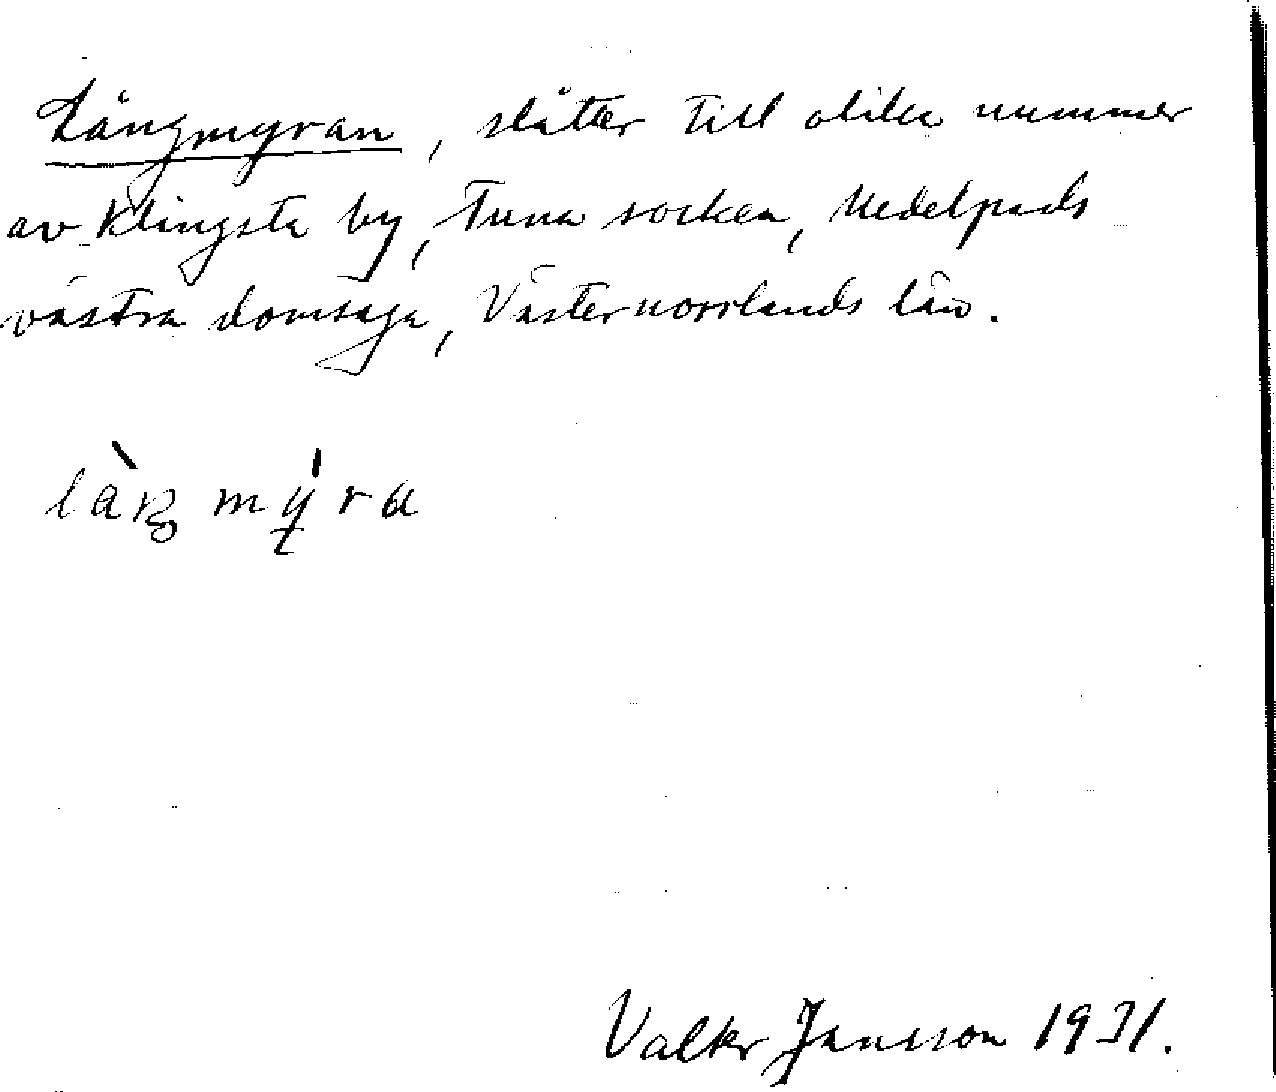 Långmyran, slåtter till olika nummer
av Klingsta by, Tuna socken, Medelpads
västra domsaga, Västernorrlands län.
làŋ mý̠ra
Valter Jansson 1931.